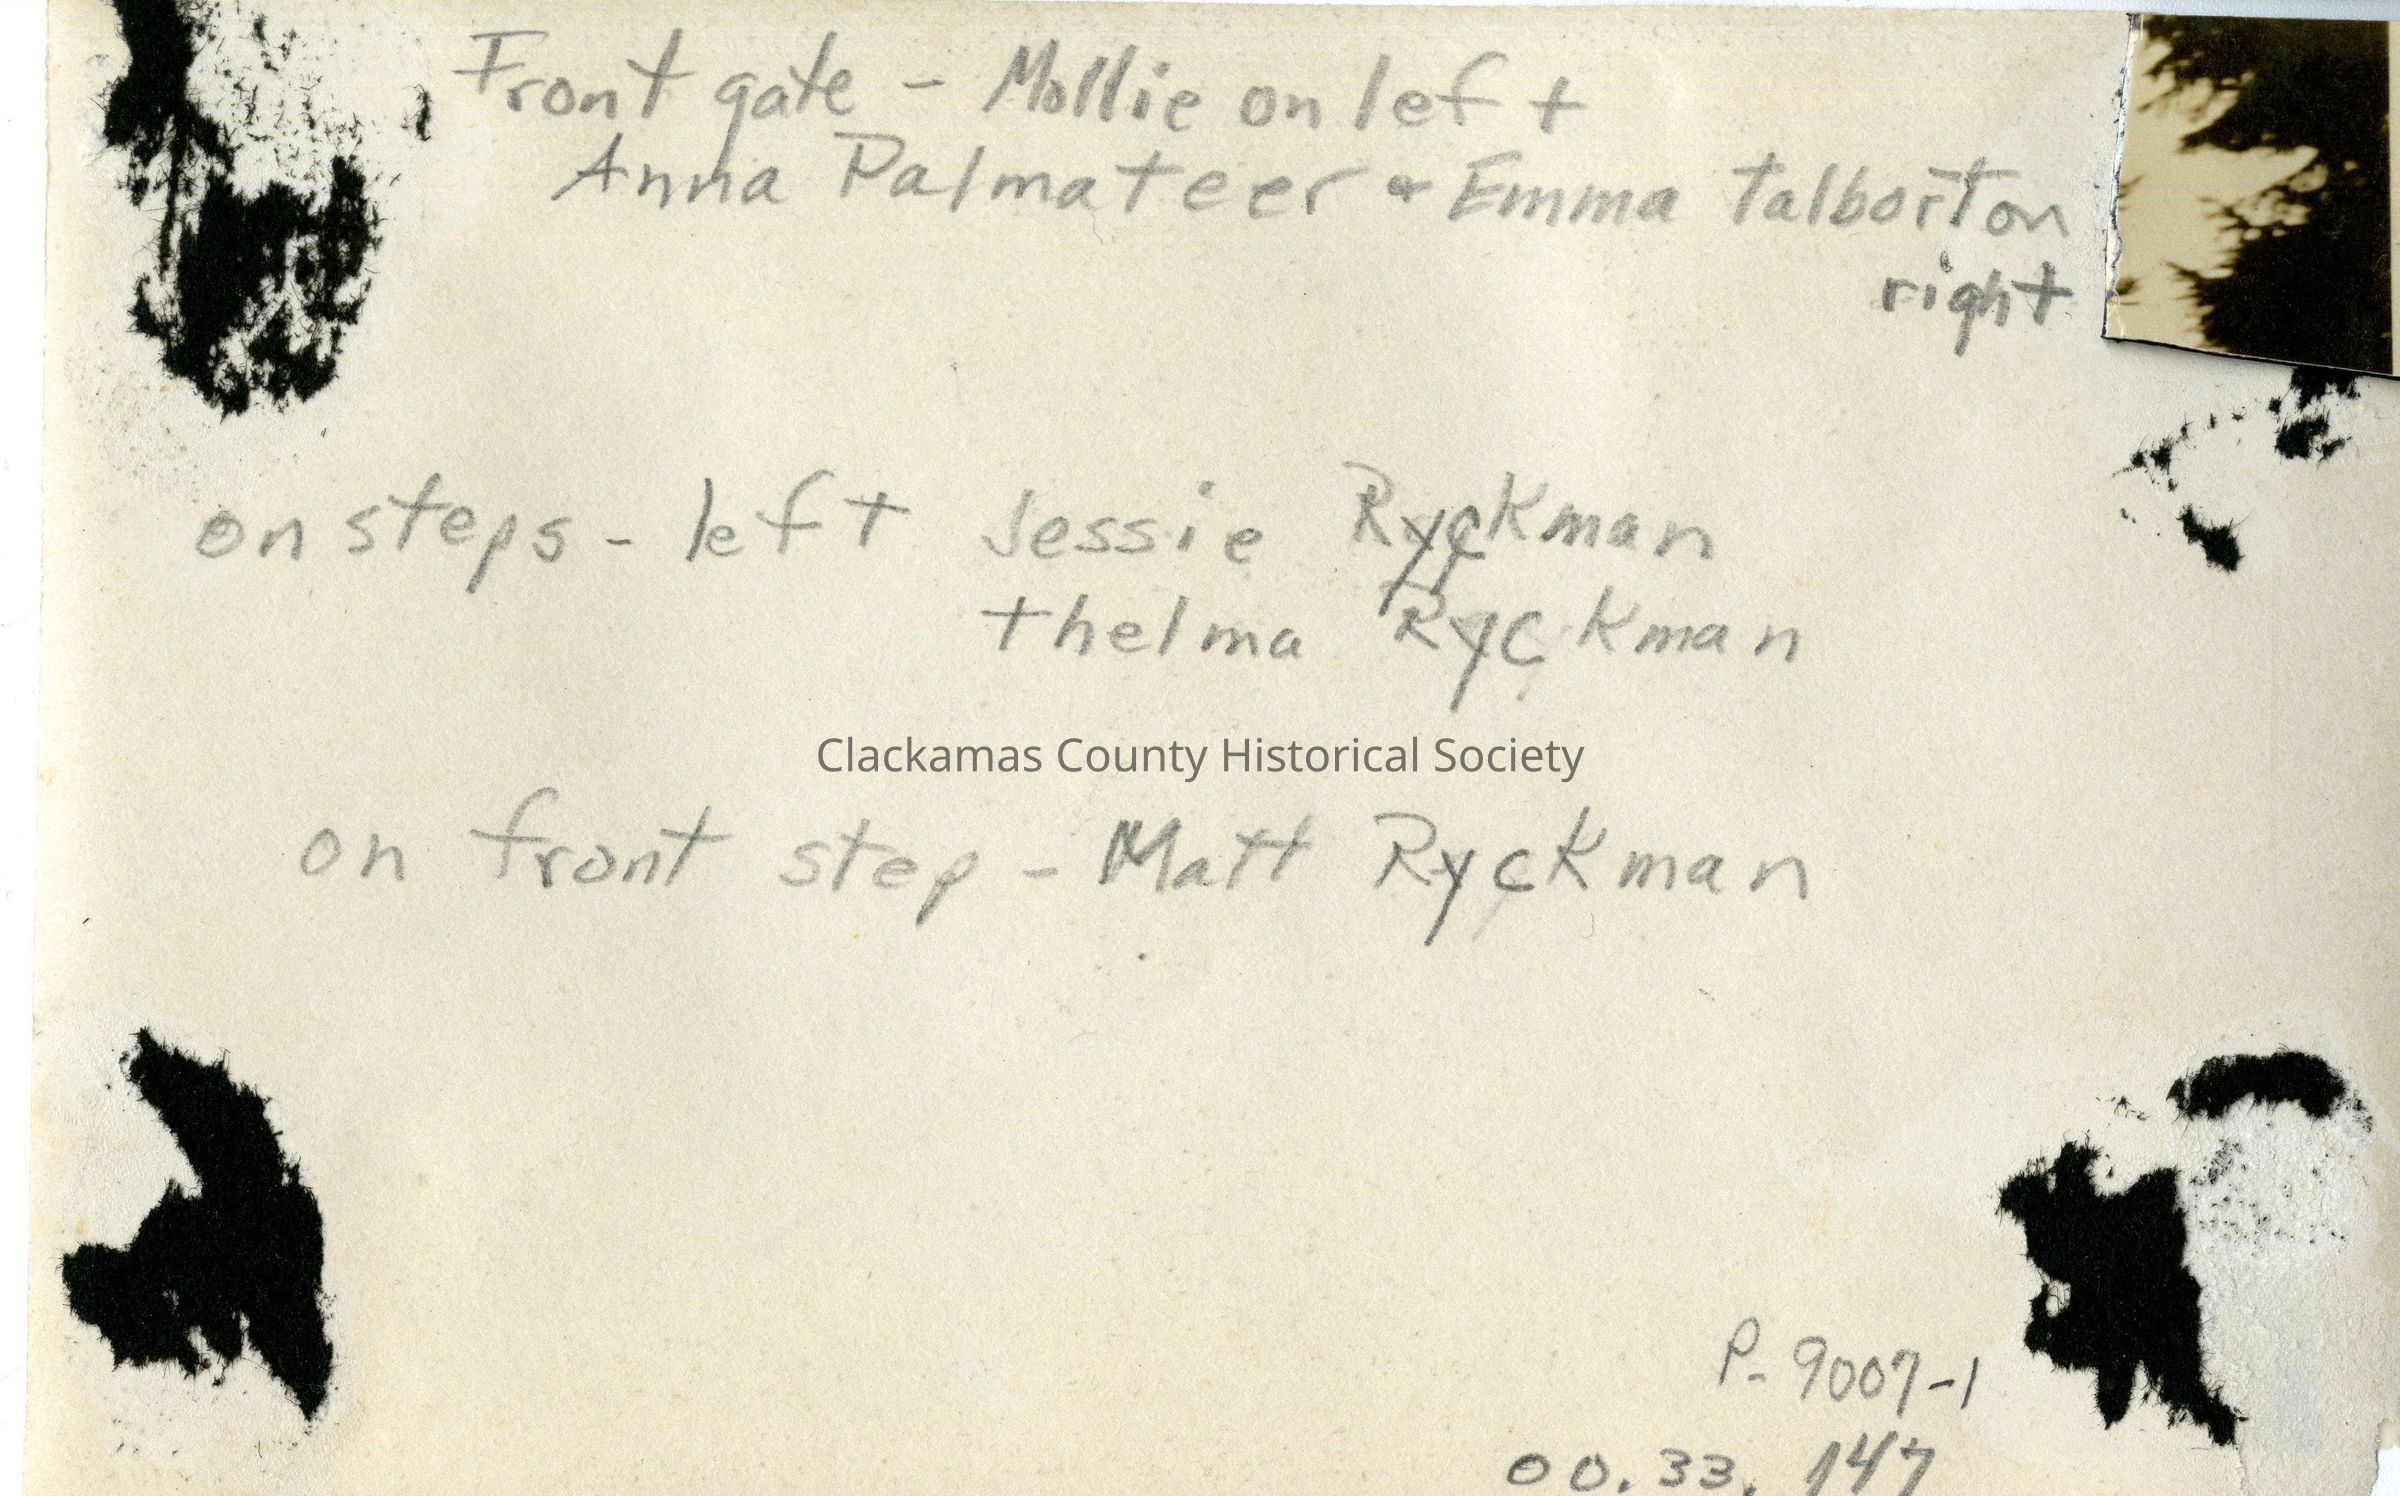 Front gate - Mollie on left
Anna Palmateer & Emma Talborton
right
on steps - left Jessie Ryckman
Thelma Ryckman
Clackamas County Historical Society
on front step - Matt Ryckman
P- 9007-1
00.33.147